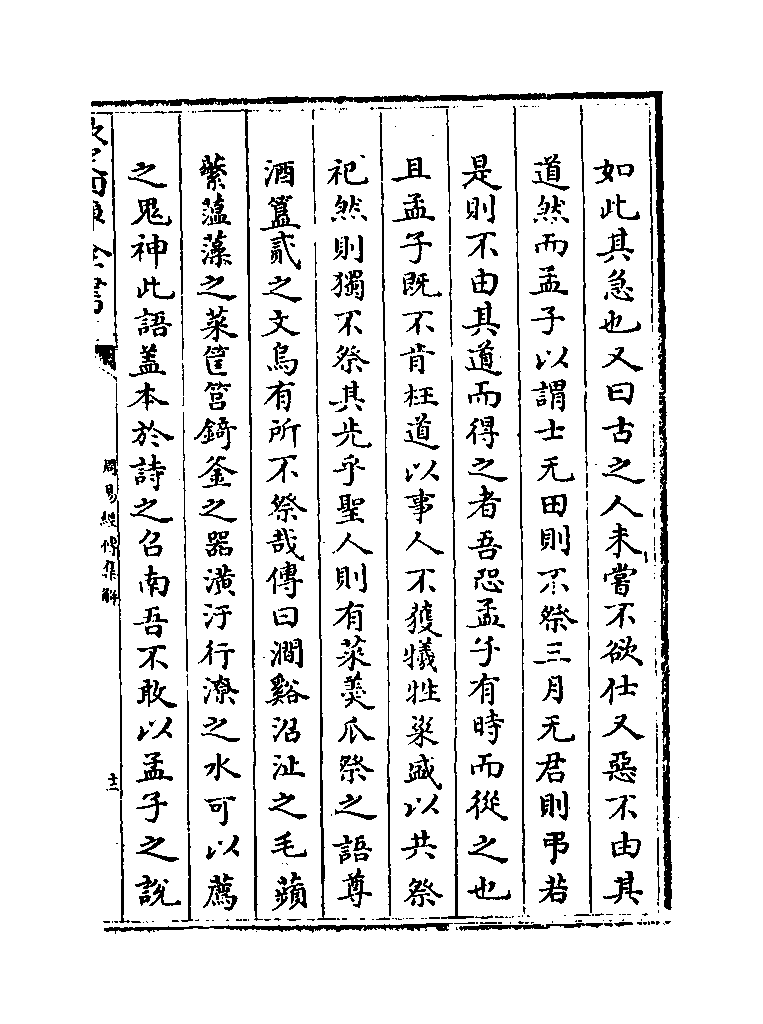 如此其急也又曰古之人未嘗不欲仕又惡不由其
道然而孟子以謂士无田則不祭三月无君則弔若
是則不由其道而得之者吾恐孟子有時而從之也
且孟子既不肯枉道以事人不獲犧牲粢盛以共祭
祀然則獨不祭其先乎聖人則有菜羮瓜祭之語尊
酒簋貳之文烏有所不祭哉傳曰澗谿沼沚之毛蘋
蘩薀藻之菜筐筥錡釜之器潢汙行潦之水可以薦
之鬼神此語盖本於詩之召南吾不敢以孟子之說
欽定四庫全書
周易經傳集解
十二